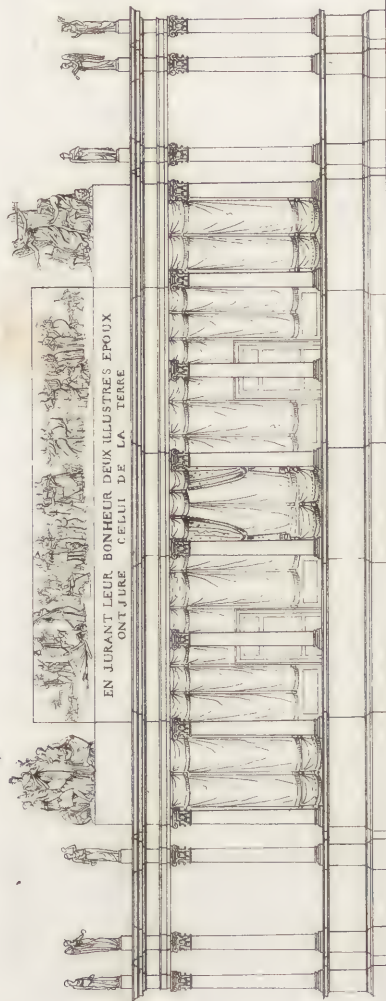 EN JURANT LEUR BONHEUR DEUX ILLUSTRES EPOUX
ONT JURE CELUI DE LA TERRE